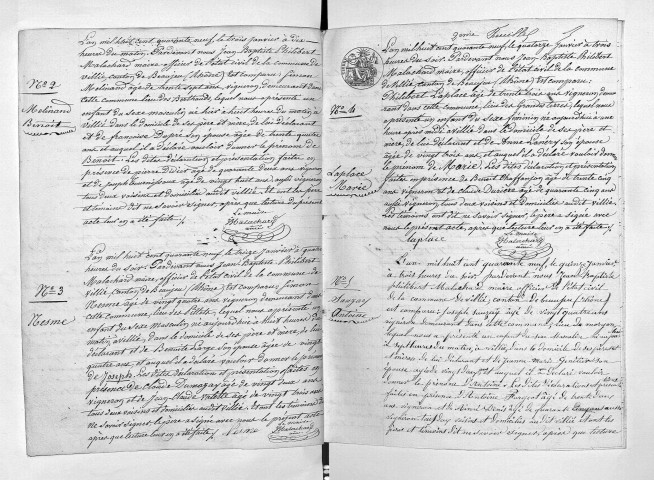 N° 2
Molinard
Benoit
L'an mil huit cent quarante neuf, le trois janvier à dix
heures du matin, Pardevant nous Jean Baptiste Philibert
Malachard maire officier de l'état civil de la commune de
villié, canton de Beaujeu (Rhône) est comparu
Molinard âgé de trente sept ans, vigneron, demeurant dans
cette commune, lieu des lequel nous présente un
enfant du sexe masculin né hier à huit heures du matin à
villié dans le domicile de ses père et mère, de lui déclarant
et de françoise son épouse âgée de trente quatre
ans et auquel il a déclaré vouloir donner le prénom de
Benoit. Les dites déclaration et présentation faites en
présence de pierre Didier âgé de quarante deux ans vigneron
et de joseph âgé de vingt huit ans, aussi vigneron
tous deux voisins et domiciliés audit villié. Et ont les père
et témoins dit ne savoir signer, lecture du présent
acte leur en a été faite
Le maire
Malachard
N° 3
Nesme
L'an mil huit cent quarante neuf, le treize janvier à quatre
heures du soir Pardevant nous Jean Baptiste Philibert
Malachard maire officier de l'état civil de la commune de
villié, canton de Beaujeu (Rhône) est comparu Simon
Nesme âgé de vingt quatre ans vigneron demeurant dans
cette commune, lieu des lequel nous a présenté un
enfant du sexe masculin né aujourd'hui à huit heures du
matin, à villié, dans le domicile de ses père et mère, de lui
déclarant et de Benoite Large son épouse âgée de vingt
quatre ans, et auquel il a déclaré vouloir donner le prénom
de Joseph. Les dites déclaration et présentation faites en
présence de Claude Dumazay âgé de vingt deux ans
vigneron et de Jean Claude âgé de vingt ans
tous deux voisins et domiciliés audit villié. Et ont les témoins dit
ne savoir signer, le père a signé avec nous le présent acte
après que lecture leur en a été faite. Nesme
Le maire
Malachard
2eme Feuillet
N° 4
Laplace
Marie
L'an mil huit cent quarante neuf, le quatorze janvier à trois
heures du soir, Pardevant nous Jean Baptiste Philibert
Malachard maire, officier de l'état civil de la commune
de villié, canton de Beaujeu (Rhône) est comparu
Philibert Laplace âgé de trente trois ans vigneron, demeu
rant dans cette commune, lieu des Grandes terres, lequel nous a
présenté un enfant du sexe féminin né aujourd'hui à une
heure après midi à villié dans le domicile de ses père et
mère, de lui déclarant et de Anne Lanery son épouse
âgée de vingt trois ans, et auquel il a déclaré vouloir donner
le prénom de Marie. Les dites déclaration et présentation
faites en présence de Benoit Chaffanjon âgé de trente cinq
ans vigneron et de Claude âgé de quarante cinq ans
aussi vigneron, tous deux voisins et domiciliés audit villié.
Les témoins ont dit ne savoir signer, le père a signé avec
nous le présent acte, après que lecture leur en a été faite
Laplace
Le maire
Malachard
N° 5
Antoine
L'an mil huit cent quarante neuf, le quinze janvier
à trois heures du soir pardevant nous Jean Baptiste
philibert Malachard maire officier de l'état civil
de la commune de villié, canton de beaujeu (rhône)
est comparu joseph âgé de vingt quatre ans
vigneron demeurant dans cette commune, lieu de morgon,
lequel nous a présenté un enfant du sexe Masculin né
à sept heures du matin, à villié, dans le domicile de ses père
et mère de lui déclarant et de jeanne marie son
épouse âgée de vingt sept et auquel il a Déclaré vouloir
donner le prénom d'Antoine. Les Dites déclaration et présentation
faites en présence d'Antoine âgé de trente deux
ans vigneron et de âgé de quarante cinq ans aussi
vigneron tous deux voisins et domiciliés au dit villié et ont les
père et témoins dit ne savoir signer, après que lecture